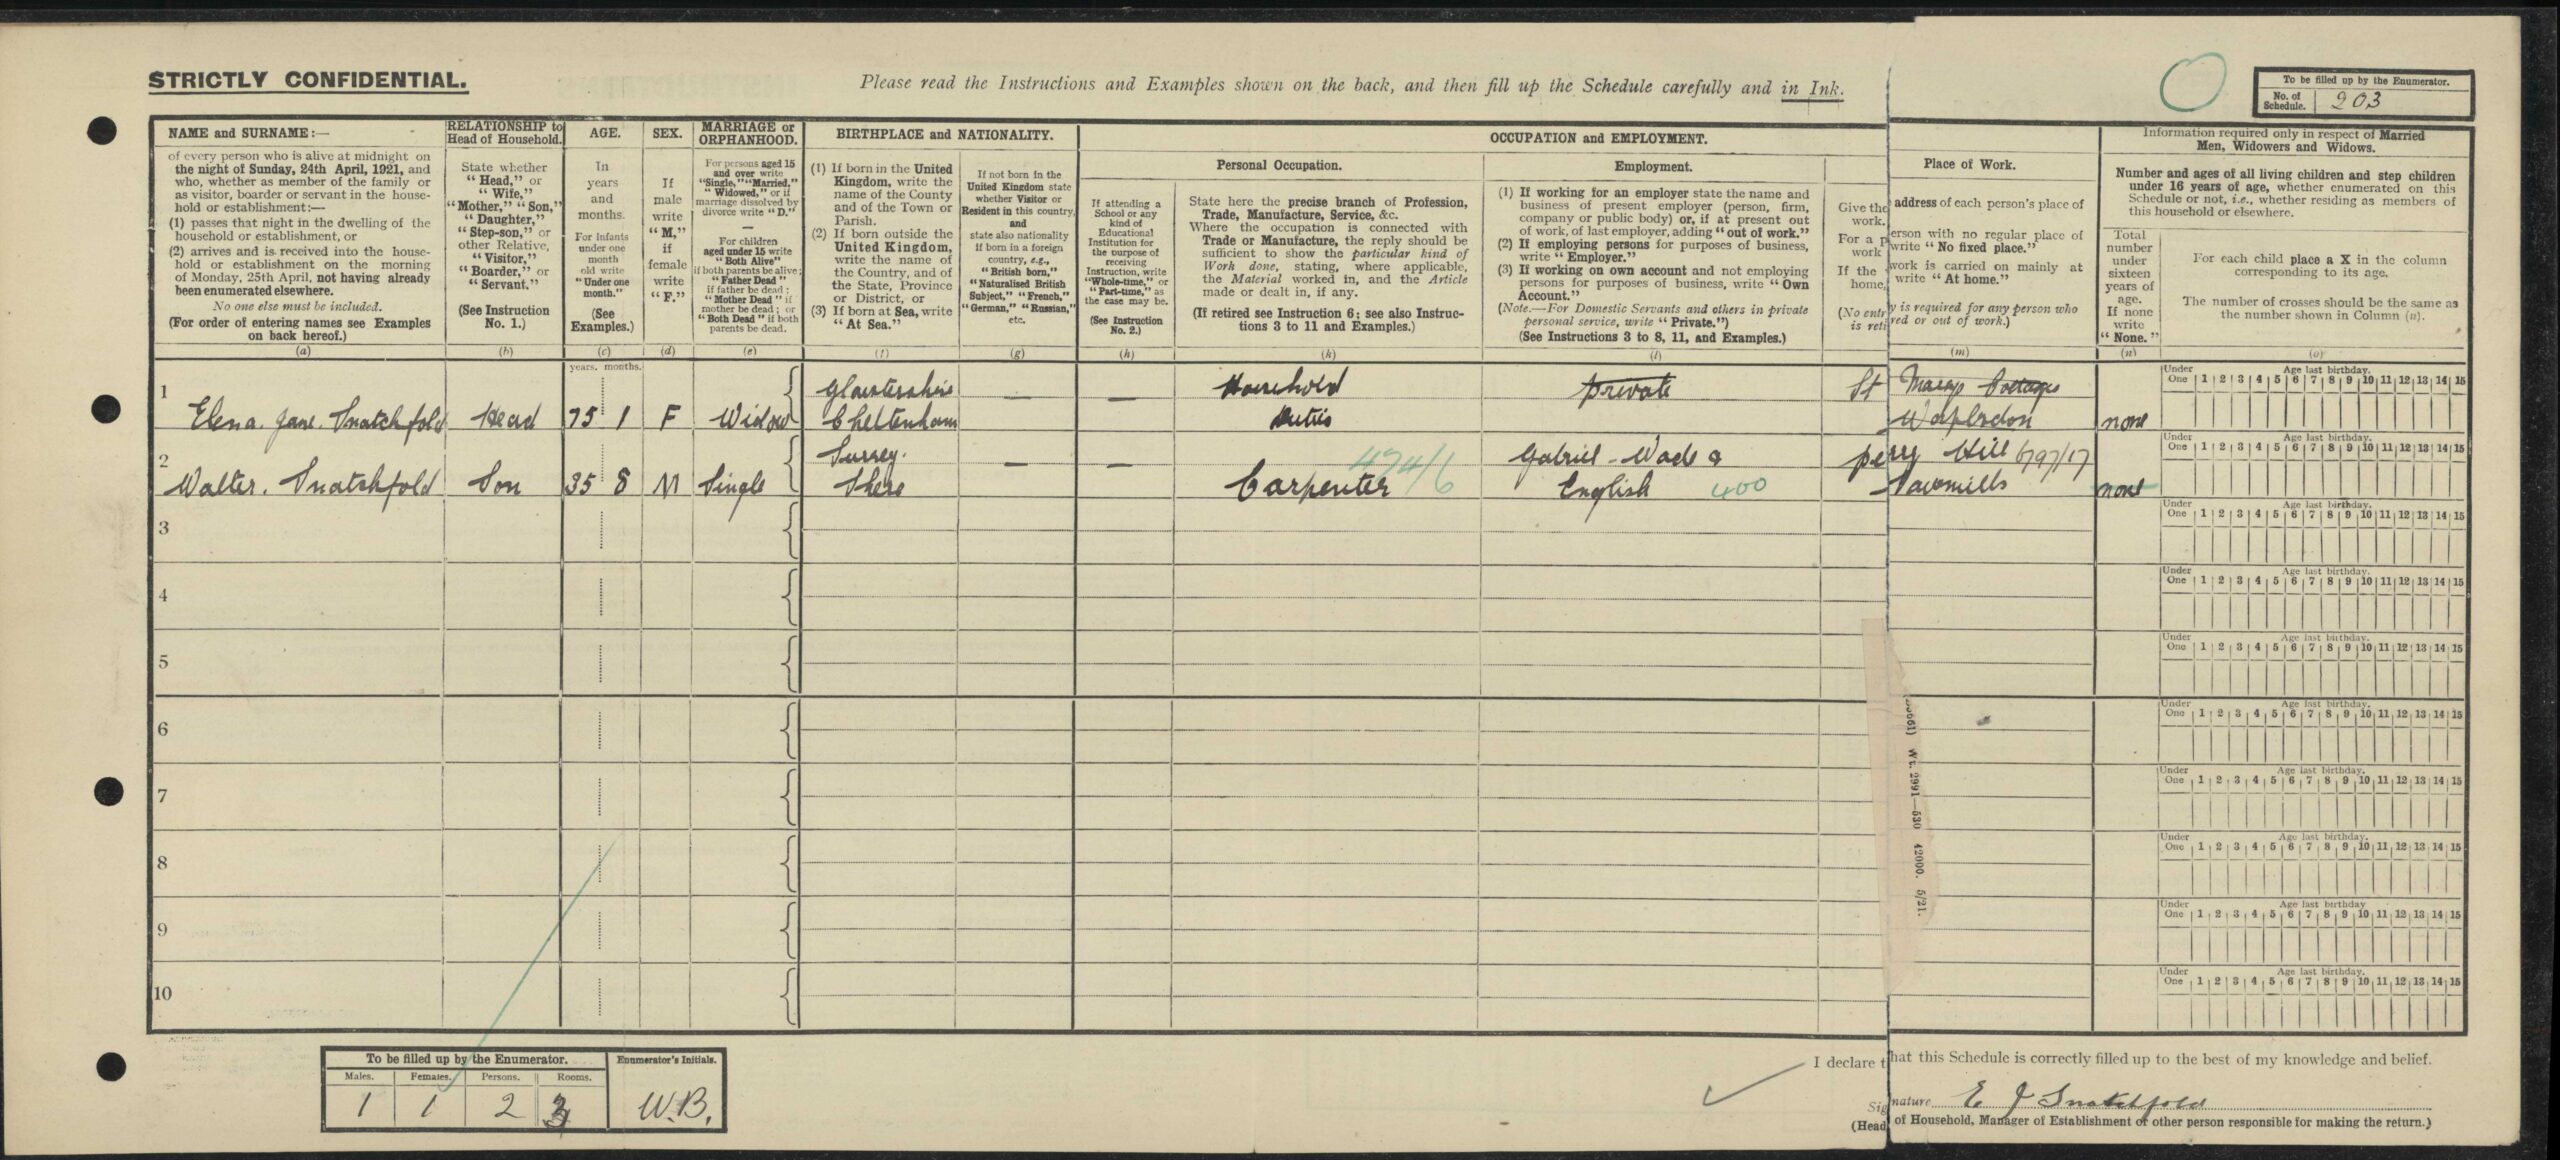 STRICTLY CONFIDENTIAL.
Please read the Instructions and Examples shown on the back, and then fill up the Schedule carefully and in Ink.
To be filled up by the Enumerator.
No. of Schedule. 203
NAME and SURNAME:—
of every person who is alive at midnight on
the night of Sunday, 24th April, 1921, and
who, whether as member of the family or
as visitor, boarder or servant in the house-
hold or establishment:—
(1) passes that night in the dwelling of the
household or establishment, or
(2) arrives and is received into the house-
hold or establishment on the morning
of Monday, 25th April, not having already
been enumerated elsewhere.
No one else must be included.
(For order of entering names see Examples
on back hereof.)
(a)
RELATIONSHIP to
Head of Household.
State whether
"Head," or
"Wife,"
"Mother," "Son,"
"Daughter,"
"Step-son," or
other Relative,
"Visitor,"
"Boarder," or
"Servant."
(See Instruction
No. 1.)
(b)
AGE.
In
years
and
months.
For infants
under one
month
old write
"Under one
month."
(See
Examples.)
(c)
years. months.
SEX.
If
male
write
"M,"
if
female
write
"F."
(d)
MARRIAGE or
ORPHANHOOD.
For persons aged 15
and over write
"Single," "Married,"
"Widowed," or if
marriage dissolved by
divorce write "D."
—
For children
aged under 15 write
"Both Alive"
if both parents be alive;
"Father Dead"
if father be dead;
"Mother Dead" if
mother be dead; or
"Both Dead" if both
parents be dead.
(e)
BIRTHPLACE and NATIONALITY.
(1) If born in the United
Kingdom, write the
name of the County
and of the Town or
Parish.
(2) If born outside the
United Kingdom,
write the name of
the Country, and of
the State, Province
or District, or
(3) If born at Sea, write
"At Sea."
(f)
If not born in the
United Kingdom state
whether Visitor or
Resident in this country,
and
state also nationality
if born in a foreign
country, e.g.,
"British born,"
"Naturalised British
Subject," "French,"
"German," "Russian,"
etc.
(g)
OCCUPATION and EMPLOYMENT.
If attending a
School or any
kind of
Educational
Institution for
the purpose of
receiving
Instruction, write
"Whole-time," or
"Part-time," as
the case may be.
(See Instruction
No. 2.)
(h)
Personal Occupation.
State here the precise branch of Profession,
Trade, Manufacture, Service, &c.
Where the occupation is connected with
Trade or Manufacture, the reply should be
sufficient to show the particular kind of
Work done, stating, where applicable,
the Material worked in, and the Article
made or dealt in, if any.
(If retired see Instruction 6; see also Instruc-
tions 3 to 11 and Examples.)
(k)
Employment.
(1) If working for an employer state the name and
business of present employer (person, firm,
company or public body) or, if at present out
of work, of last employer, adding "out of work."
(2) If employing persons for purposes of business,
write "Employer."
(3) If working on own account and not employing
persons for purposes of business, write "Own
Account."
(Note.—For Domestic Servants and others in private
personal service, write "Private.")
(See Instructions 3 to 8, 11, and Examples.)
(l)
Place of Work.
Give the address of each person's place of
work.
For a person with no regular place of
work write "No fixed place."
If the work is carried on mainly at
home, write "At home."
(No entry is required for any person who
is retired or out of work.)
(m)
Information required only in respect of Married
Men, Widowers and Widows.
Number and ages of all living children and step children
under 16 years of age, whether enumerated on this
Schedule or not, i.e., whether residing as members of
this household or elsewhere.
Total
number
under
sixteen
years of
age.
If none
write
"None."
(n)
For each child place a X in the column
corresponding to its age.
The number of crosses should be the same as
the number shown in Column (n).
(o)
Under One Age last birthday. 1 2 3 4 5 6 7 8 9 10 11 12 13 14 15
1 Gloucestershire — — Household private St Marys Cottages
Elena. Jane. Snatchfold Head 75 1 F Widow Cheltenham Duties Worplesdon none
Under One Age last birthday. 1 2 3 4 5 6 7 8 9 10 11 12 13 14 15
2 Surrey. — — 474/6 Gabriel - Wade & perry Hill 6797/17
Walter. Snatchfold Son 35 8 M Single Shere Carpenter English 400 Sawmills none
Under One Age last birthday. 1 2 3 4 5 6 7 8 9 10 11 12 13 14 15
3
Under One Age last birthday. 1 2 3 4 5 6 7 8 9 10 11 12 13 14 15
4
Under One Age last birthday. 1 2 3 4 5 6 7 8 9 10 11 12 13 14 15
5
Under One Age last birthday. 1 2 3 4 5 6 7 8 9 10 11 12 13 14 15
6
Under One Age last birthday. 1 2 3 4 5 6 7 8 9 10 11 12 13 14 15
7
Under One Age last birthday. 1 2 3 4 5 6 7 8 9 10 11 12 13 14 15
8
Under One Age last birthday. 1 2 3 4 5 6 7 8 9 10 11 12 13 14 15
9
Under One Age last birthday 1 2 3 4 5 6 7 8 9 10 11 12 13 14 15
10
Under One Age last birthday. 1 2 3 4 5 6 7 8 9 10 11 12 13 14 15
Wt. 2991—530 42000. 5/21.
To be filled up by the Enumerator.
Males. Females. Persons. Rooms.
1 1 2
Enumerator's Initials.
W.B.
I declare that this Schedule is correctly filled up to the best of my knowledge and belief.
Signature E J Snatchfold
(Head of Household, Manager of Establishment or other person responsible for making the return.)